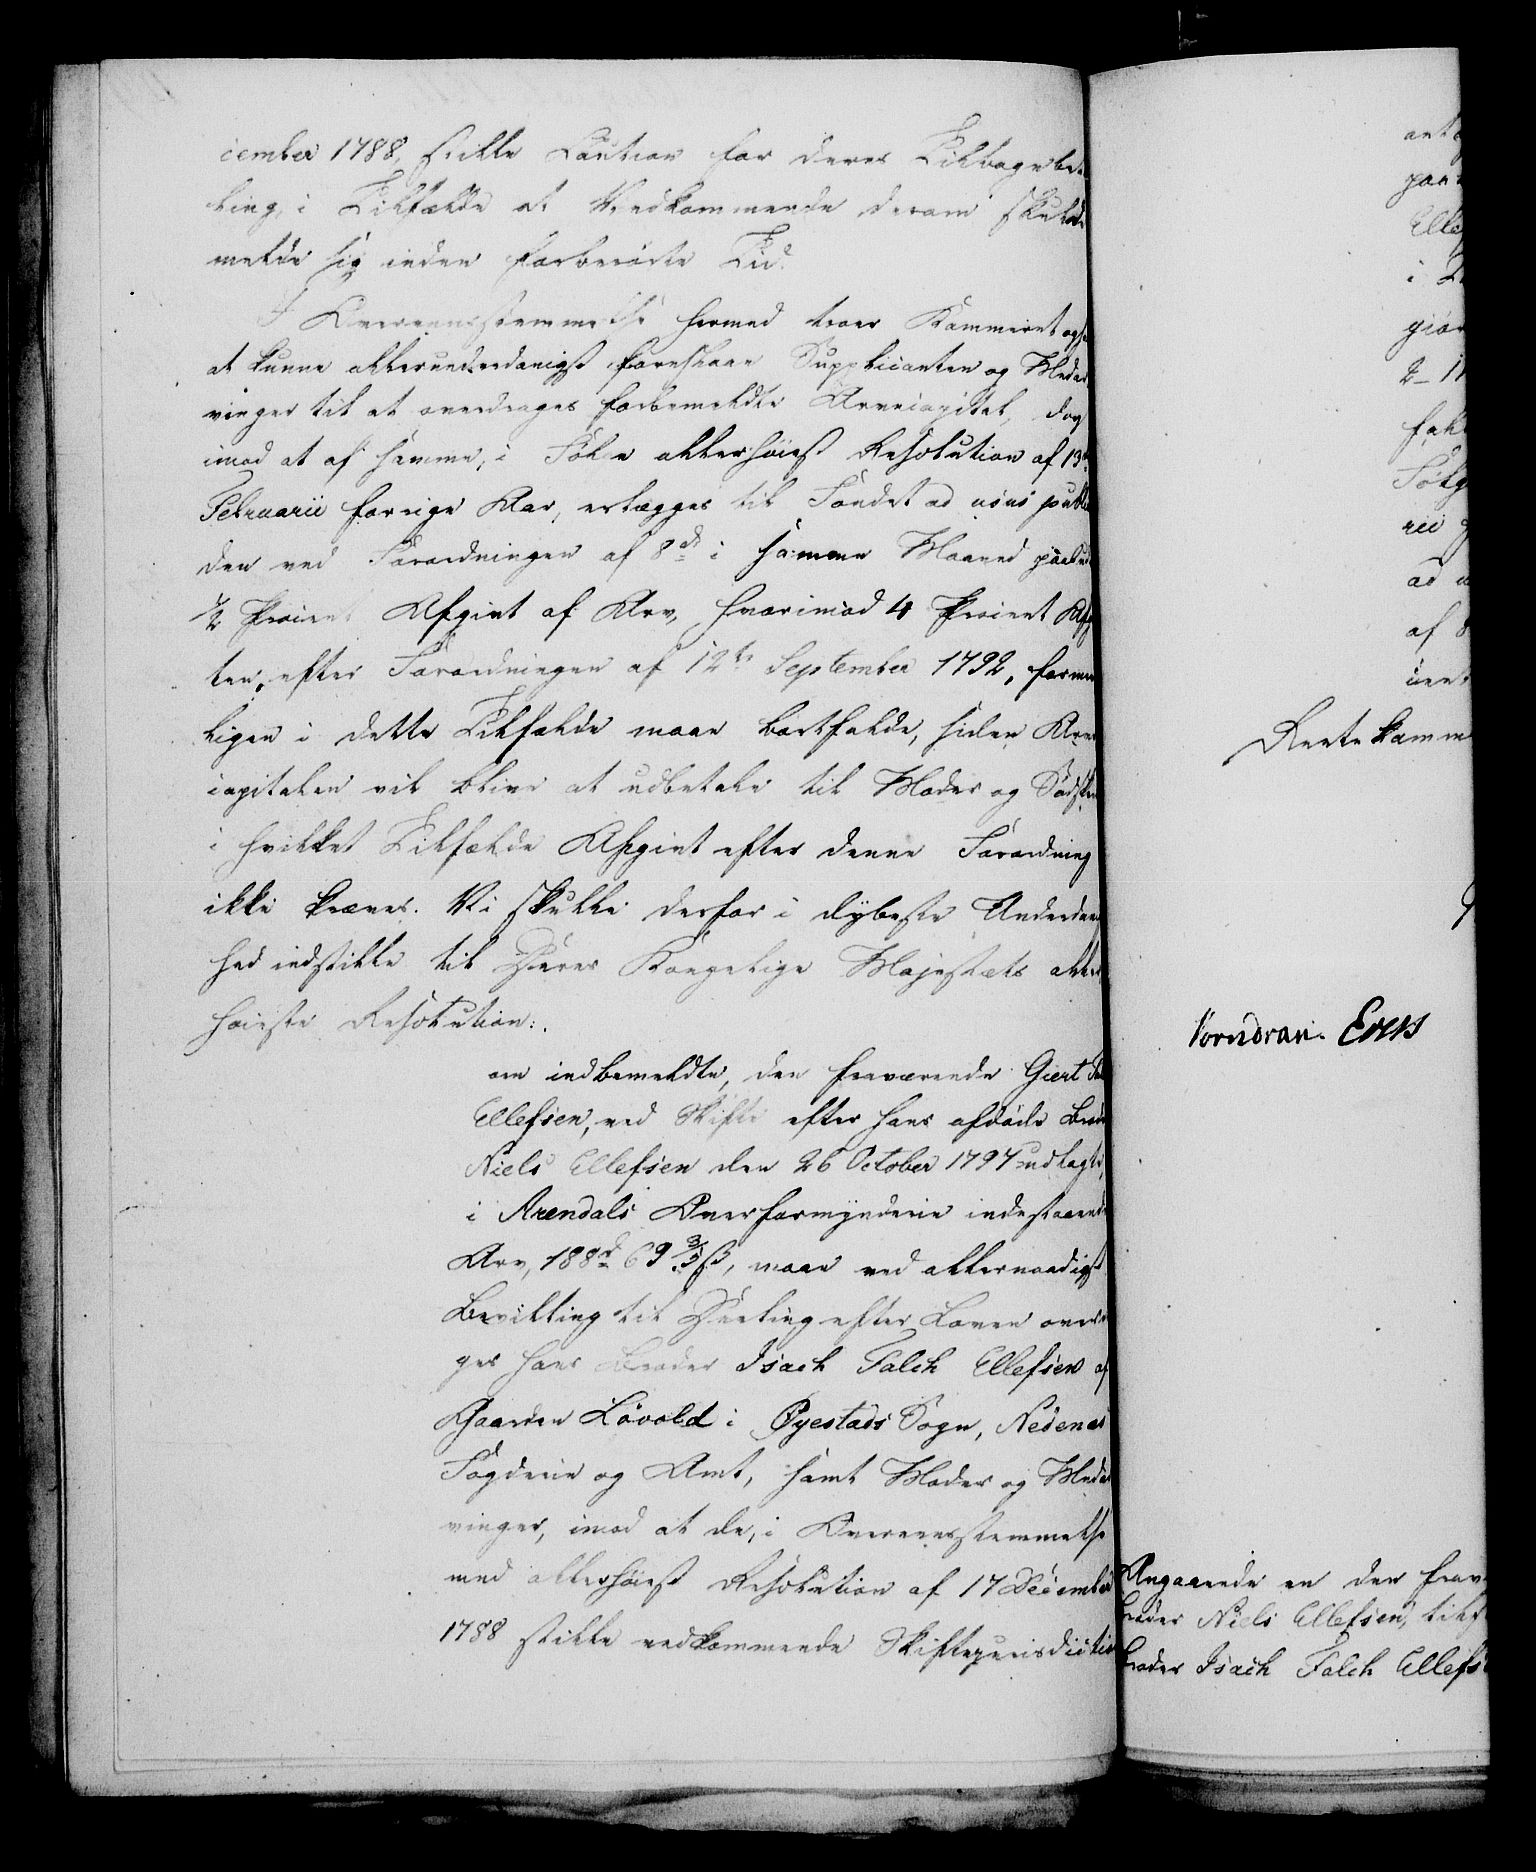 cember 1788, stille Caution for deres Tilbagebeta
ling, i Tilfælde at Vedkommende derom skulde
melde sig inden forberørte Tid.
I Overeensstemmelse hermed troer Kammeret ogsaa
at kunne allerunderdanigst foreslaae Supplicanten og Medar
vinger til at overdrages forbemeldte Arvecapital, dog
imod at af samme, i Følge allerhøiest Resolution af 13de
Februarii forrige Aar, erlægges til Fondet ad usus publicos
den ved Forordningen af 8de i samme Maaned paabudne
½ Procent Afgivt af Arv, hvorimod 4 Procent Afgiv
ten, efter Forordningen af 12te September 1792, formeent
ligen i dette Tilfælde maae bortfalde, siden Arve
capitalen vil blive at udbetale til Moder og Sødskende
i hvilket Tilfælde Afgivt efter denne Forordning
ikke kræves. Vi skulle derfor i dybeste Underdanig
hed indstille til Deres Kongelige Majestæts aller
høieste Resolution:
om indbemeldte, den fraværende Giert
Ellefsen, ved Skifte efter hans afdøde Broder
Niels Ellefsen den 26 October 1797 udlagte,
i Arendals Overformynderie indestaaende
Arv, 188 rd 69 3/5 ß, maae ved allernaadigst
Bevilling til Deeling efter Loven overdra
ges hans Broder Isach Falch Ellefsen af
Gaarden Løvold i Øyestads Sogn, Nedenæs
Fogderie og Amt, samt Moder og Medar
vinger, imod at de, i Overeensstemmelse
med allerhøiest Resolution af 17 December
1788 stille vedkommende Skiftejurisdiction
Rentekamm
Vorndran. Evers
Angaaende en den frav
Broder Niels Ellefsen, tilf
Broder Isach Falch Ellefs